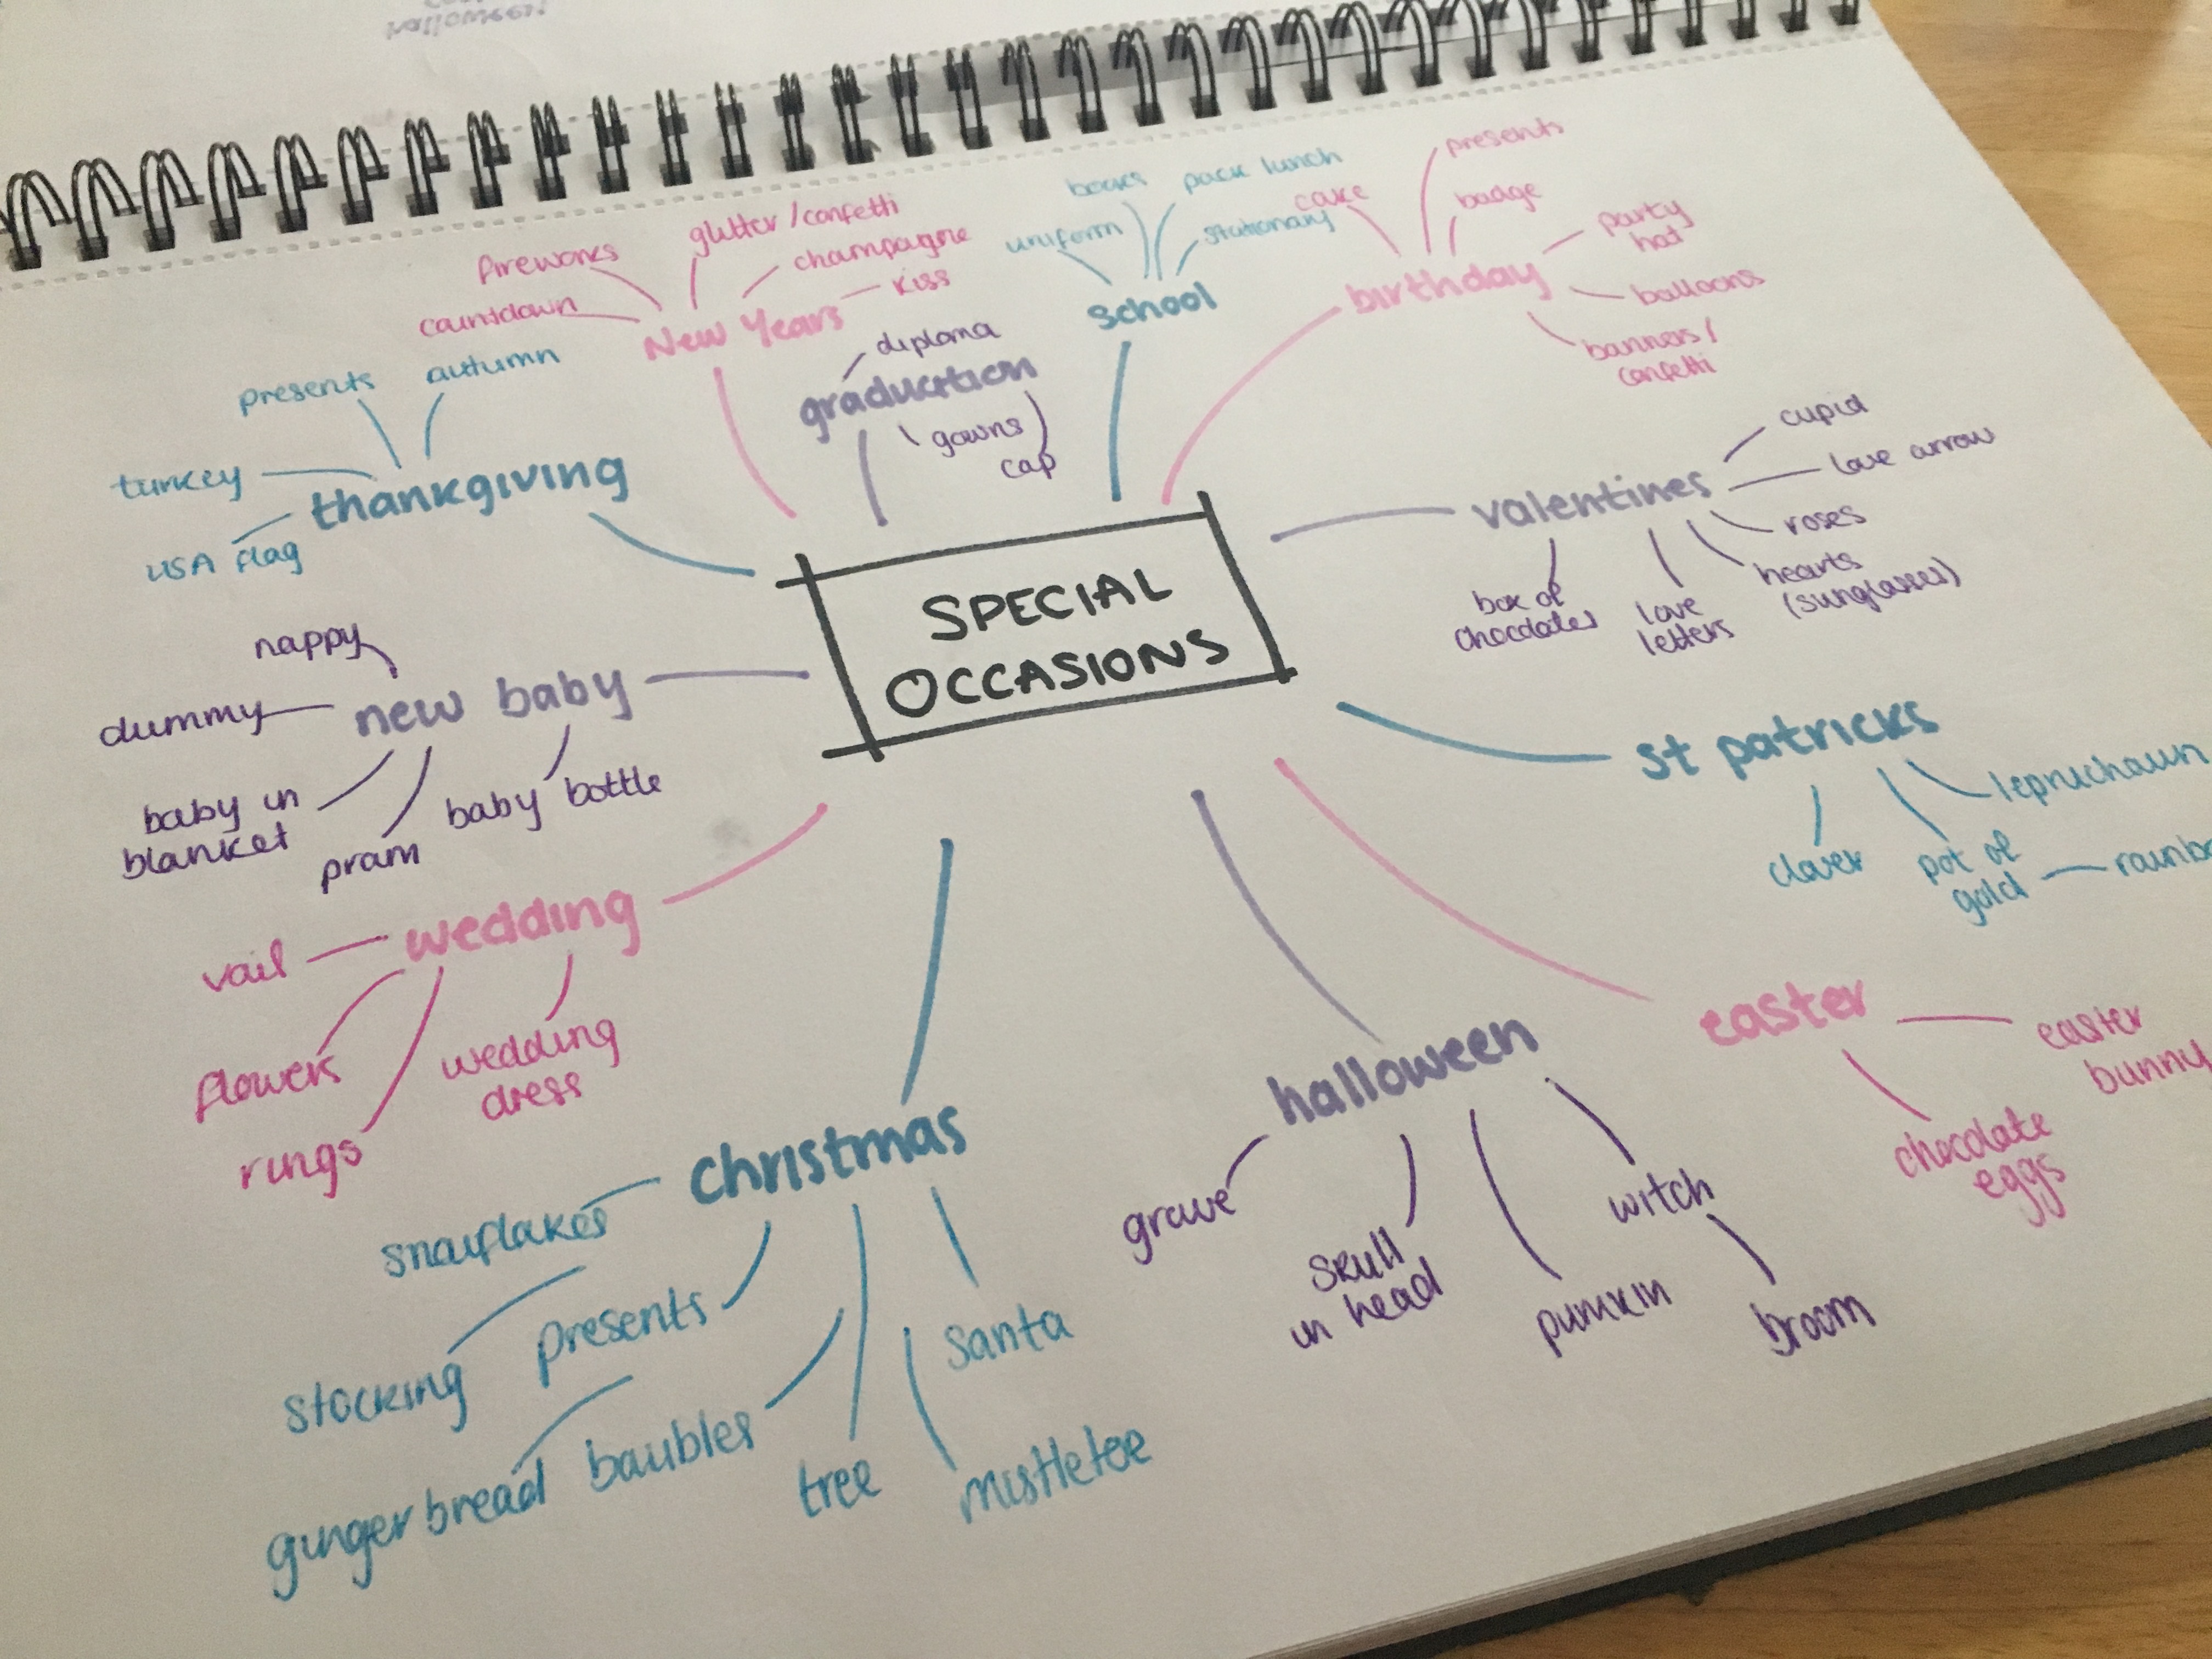 halloween!
presents
books
pack lunch
cake
badge
uniform
stationary
party
hat
glitter/confetti
fireworks
champagne
kiss
countdown
New Years
school
birthday
balloons
banners/
confetti
diploma
graduation
gowns
cap
presents
autumn
turkey
thankgiving
USA flag
cupid
love arrow
valentines
roses
hearts
(sunglasses)
box of
chocolates
love
letters
SPECIAL
OCCASIONS
nappy
dummy
new baby
baby in
blanket
pram
baby bottle
st patricks
leprichaun
clover
pot of
gold
wedding
vail
flowers
rings
wedding
dress
easter
easter
bunny
chocolate
eggs
halloween
grave
skull
in head
pumkin
witch
broom
christmas
snowflakes
stocking
presents
santa
gingerbread
baubles
tree
mistletoe